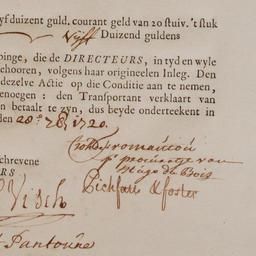 yf duizent guld. courant geld van 20 stuiv. 't stuk
Vyff Duizend guldens
pinge, die de DIRECTEURS, in tyd en wyle
ehooren, volgens haar origineelen Inleg. Den
dezelve Actie op die Conditie aan te nemen,
enoegen: den Transportant verklaart van
n betaalt te zyn, dus beyde onderteekent in
den 20e 1720.
van
Hugo du Bois
chrevene
RS
Visch
Pichfatt & foster
Pantoune